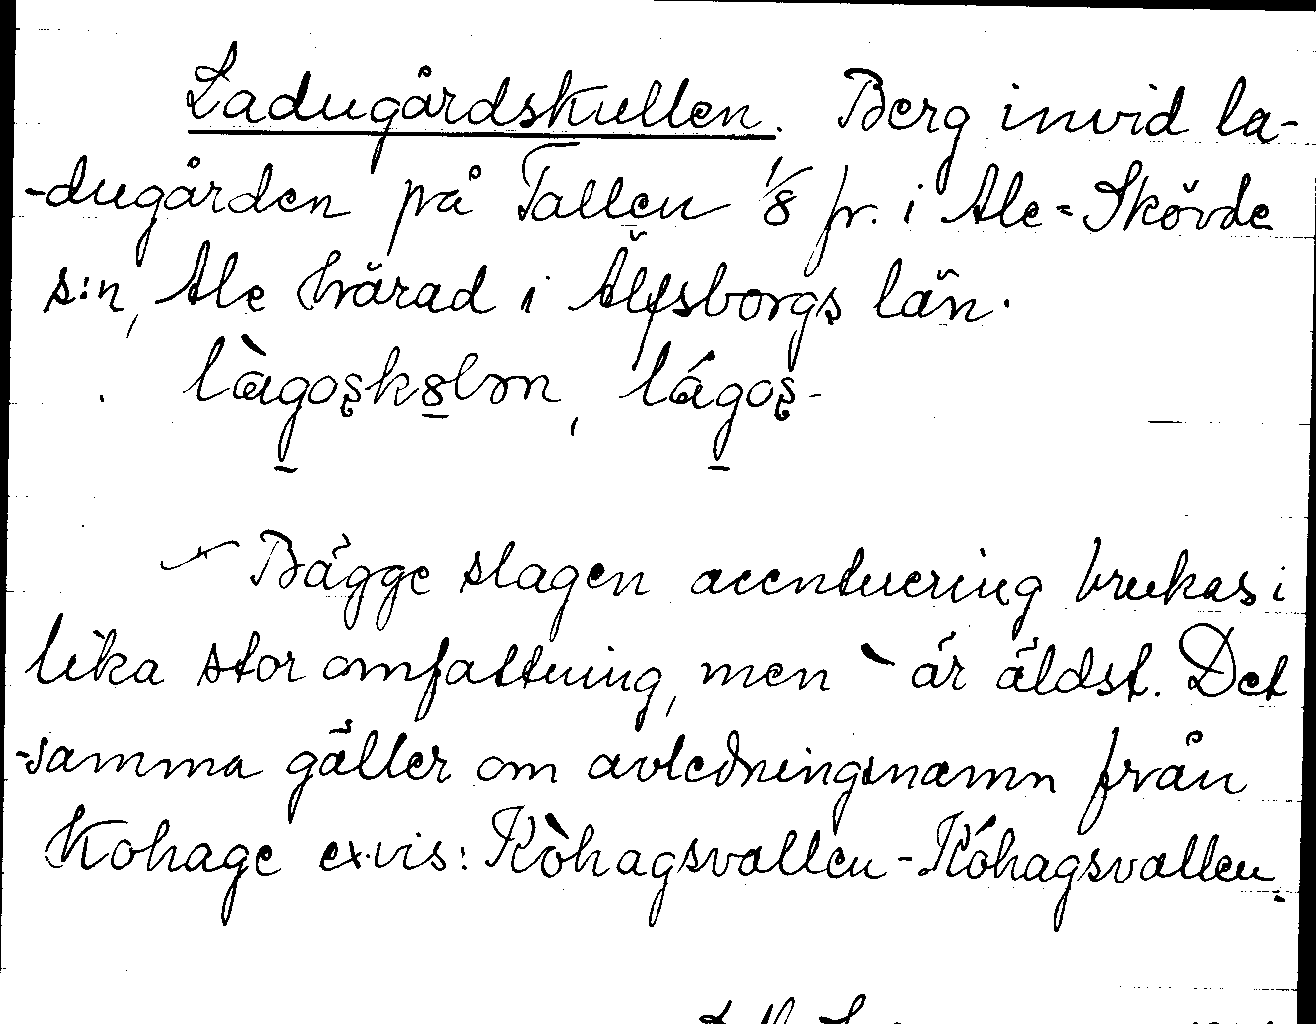 Ladugårdskullen. Berg invid la-
-dugården på Tallen 1/8 fr. i Ale-Skövde
s:n, Ale härad i Älfsborgs län.
làgoskslən, lágos-
Bägge slagen accentuering brukas i
lika stor omfattning, men ` är äldst. Det
-samma gäller om avledningsnamn från
Kohage ex.vis: Kòhagsvallen - Kóhagsvallen.